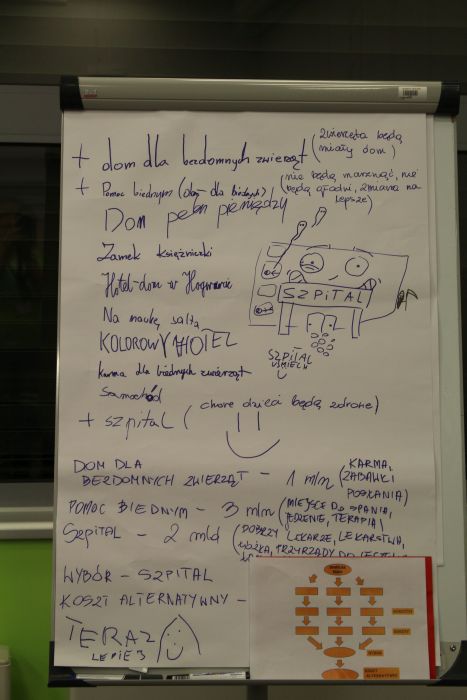 + dom dla bezdomnych zwierząt (zwierzęta będą
miały dom)
+ Pomoc biednym (obiady dla biednych) (nie będą marznąć, nie
będą głodni, zmiana na
lepsze)
Dom pełen pieniędzy
Zamek księżniczki
Hotel-dom w
Na naukę salta
KOLOROWY HOTEL
Karma dla biednych zwierząt
Samochód
SZPITAL
SZPITAL
UŚMIECH
+ szpital (chore dzieci będą zdrowe)
DOM DLA
BEZDOMNYCH ZWIERZĄT - 1 mln (KARMA,
ZABAWKI
POSŁANIA)
POMOC BIEDNYM - 3 mln (MIEJSCE DO SPANIA,
JEDZENIE, TERAPIA)
SZPITAL - 2 mld (DOBRZY LEKARZE, LEKARSTWA,
ŁÓŻKA, PRZYRZĄDY DO
WYBÓR - SZPITAL
KOSZT ALTERNATYWNY -
TERAZ
LEPIEJ
WYBÓR
KOSZT
ALTERNATYWNY